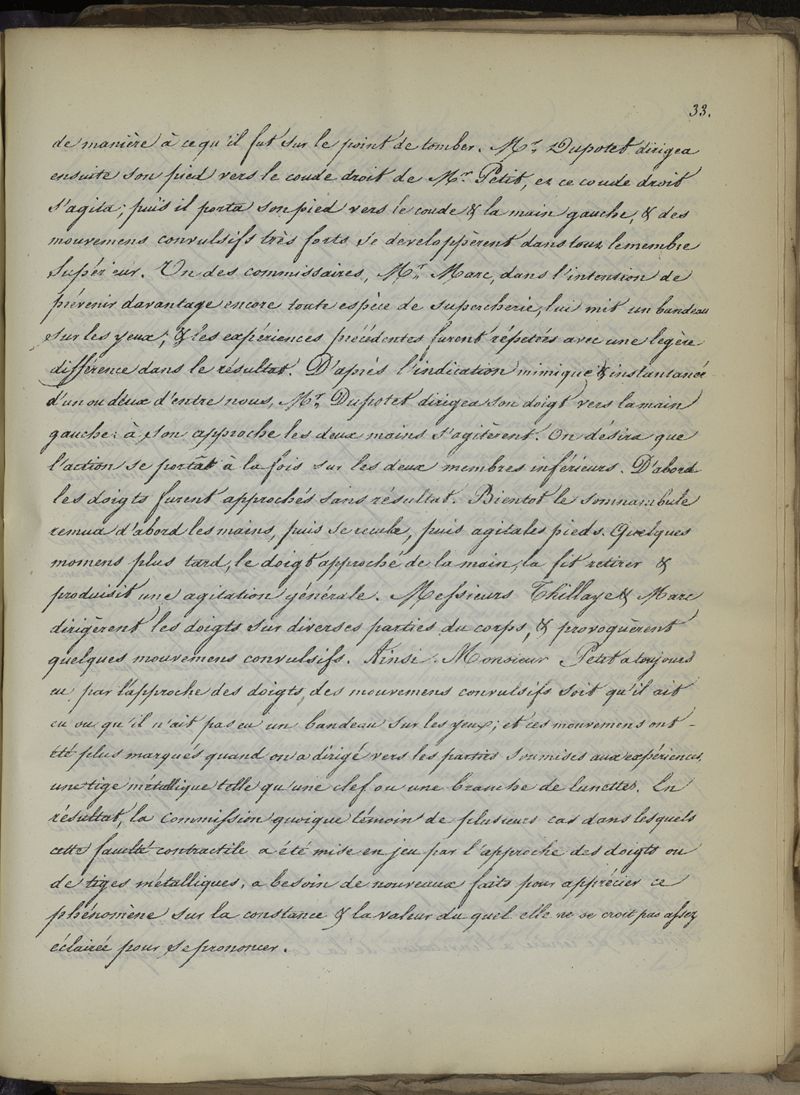 33.
de manière à ce qu'il fut sur le point de tomber. Mr. Dupotet dirigea
ensuite son pied vers le coude droit de Mr. Petit, et ce coude droit
s'agita; puis il porta son pied vers le coude & la main gauche, & des
mouvemens convulsifs très forts se developpèrent dans tout le membre
supérieur. Un des commissaires, Mr. Marc, dans l'intention de
prévenir davantage encore toute espèce de supercherie, lui mit un bandeau
sur les yeux; & les expériences précédentes furent répetées avec une legère
différence dans le résultat. D'après l'indication mimique & instantanée
d'un ou deux d'entre nous, Mr. Dupotet dirigea son doigt vers la main
gauche: à son approche les deux mains s'agitèrent. On désira que
l'action se portât à la fois sur les deux membres inférieurs. D'abord
les doigts furent approchés sans résultat. Bientot le somnambule
remua d'abord les mains, puis se recula, puis agita les pieds. Quelques
momens plus tard, le doigt approché de la main, la fit retirer &
produisit une agitation générale. Messieurs Thillaye & Marc
dirigèrent les doigts sur diverses parties du corps, & provoquèrent
quelques mouvemens convulsifs. Ainsi Monsieur Petit a toujours
eu par l'approche des doigts, des mouvemens convulsifs soit qu'il ait
eu ou qu'il n'ait pas eu un bandeau sur les yeux; et ces mouvemens ont -
été plus marqués quand on a dirigé vers les parties soumises aux expériences
une tige métallique telle qu'une clef ou une branche de lunettes. En
résultat, la commission quoique témoin de plusieurs cas dans lesquels
cette faculté contractile a été mise en jeu par l'approche des doigts ou
de tiges métalliques, a besoin de nouveaux faits pour apprécier ce
phénomène sur la constance & la valeur du quel elle ne se croit pas assez
éclairée pour se prononcer.